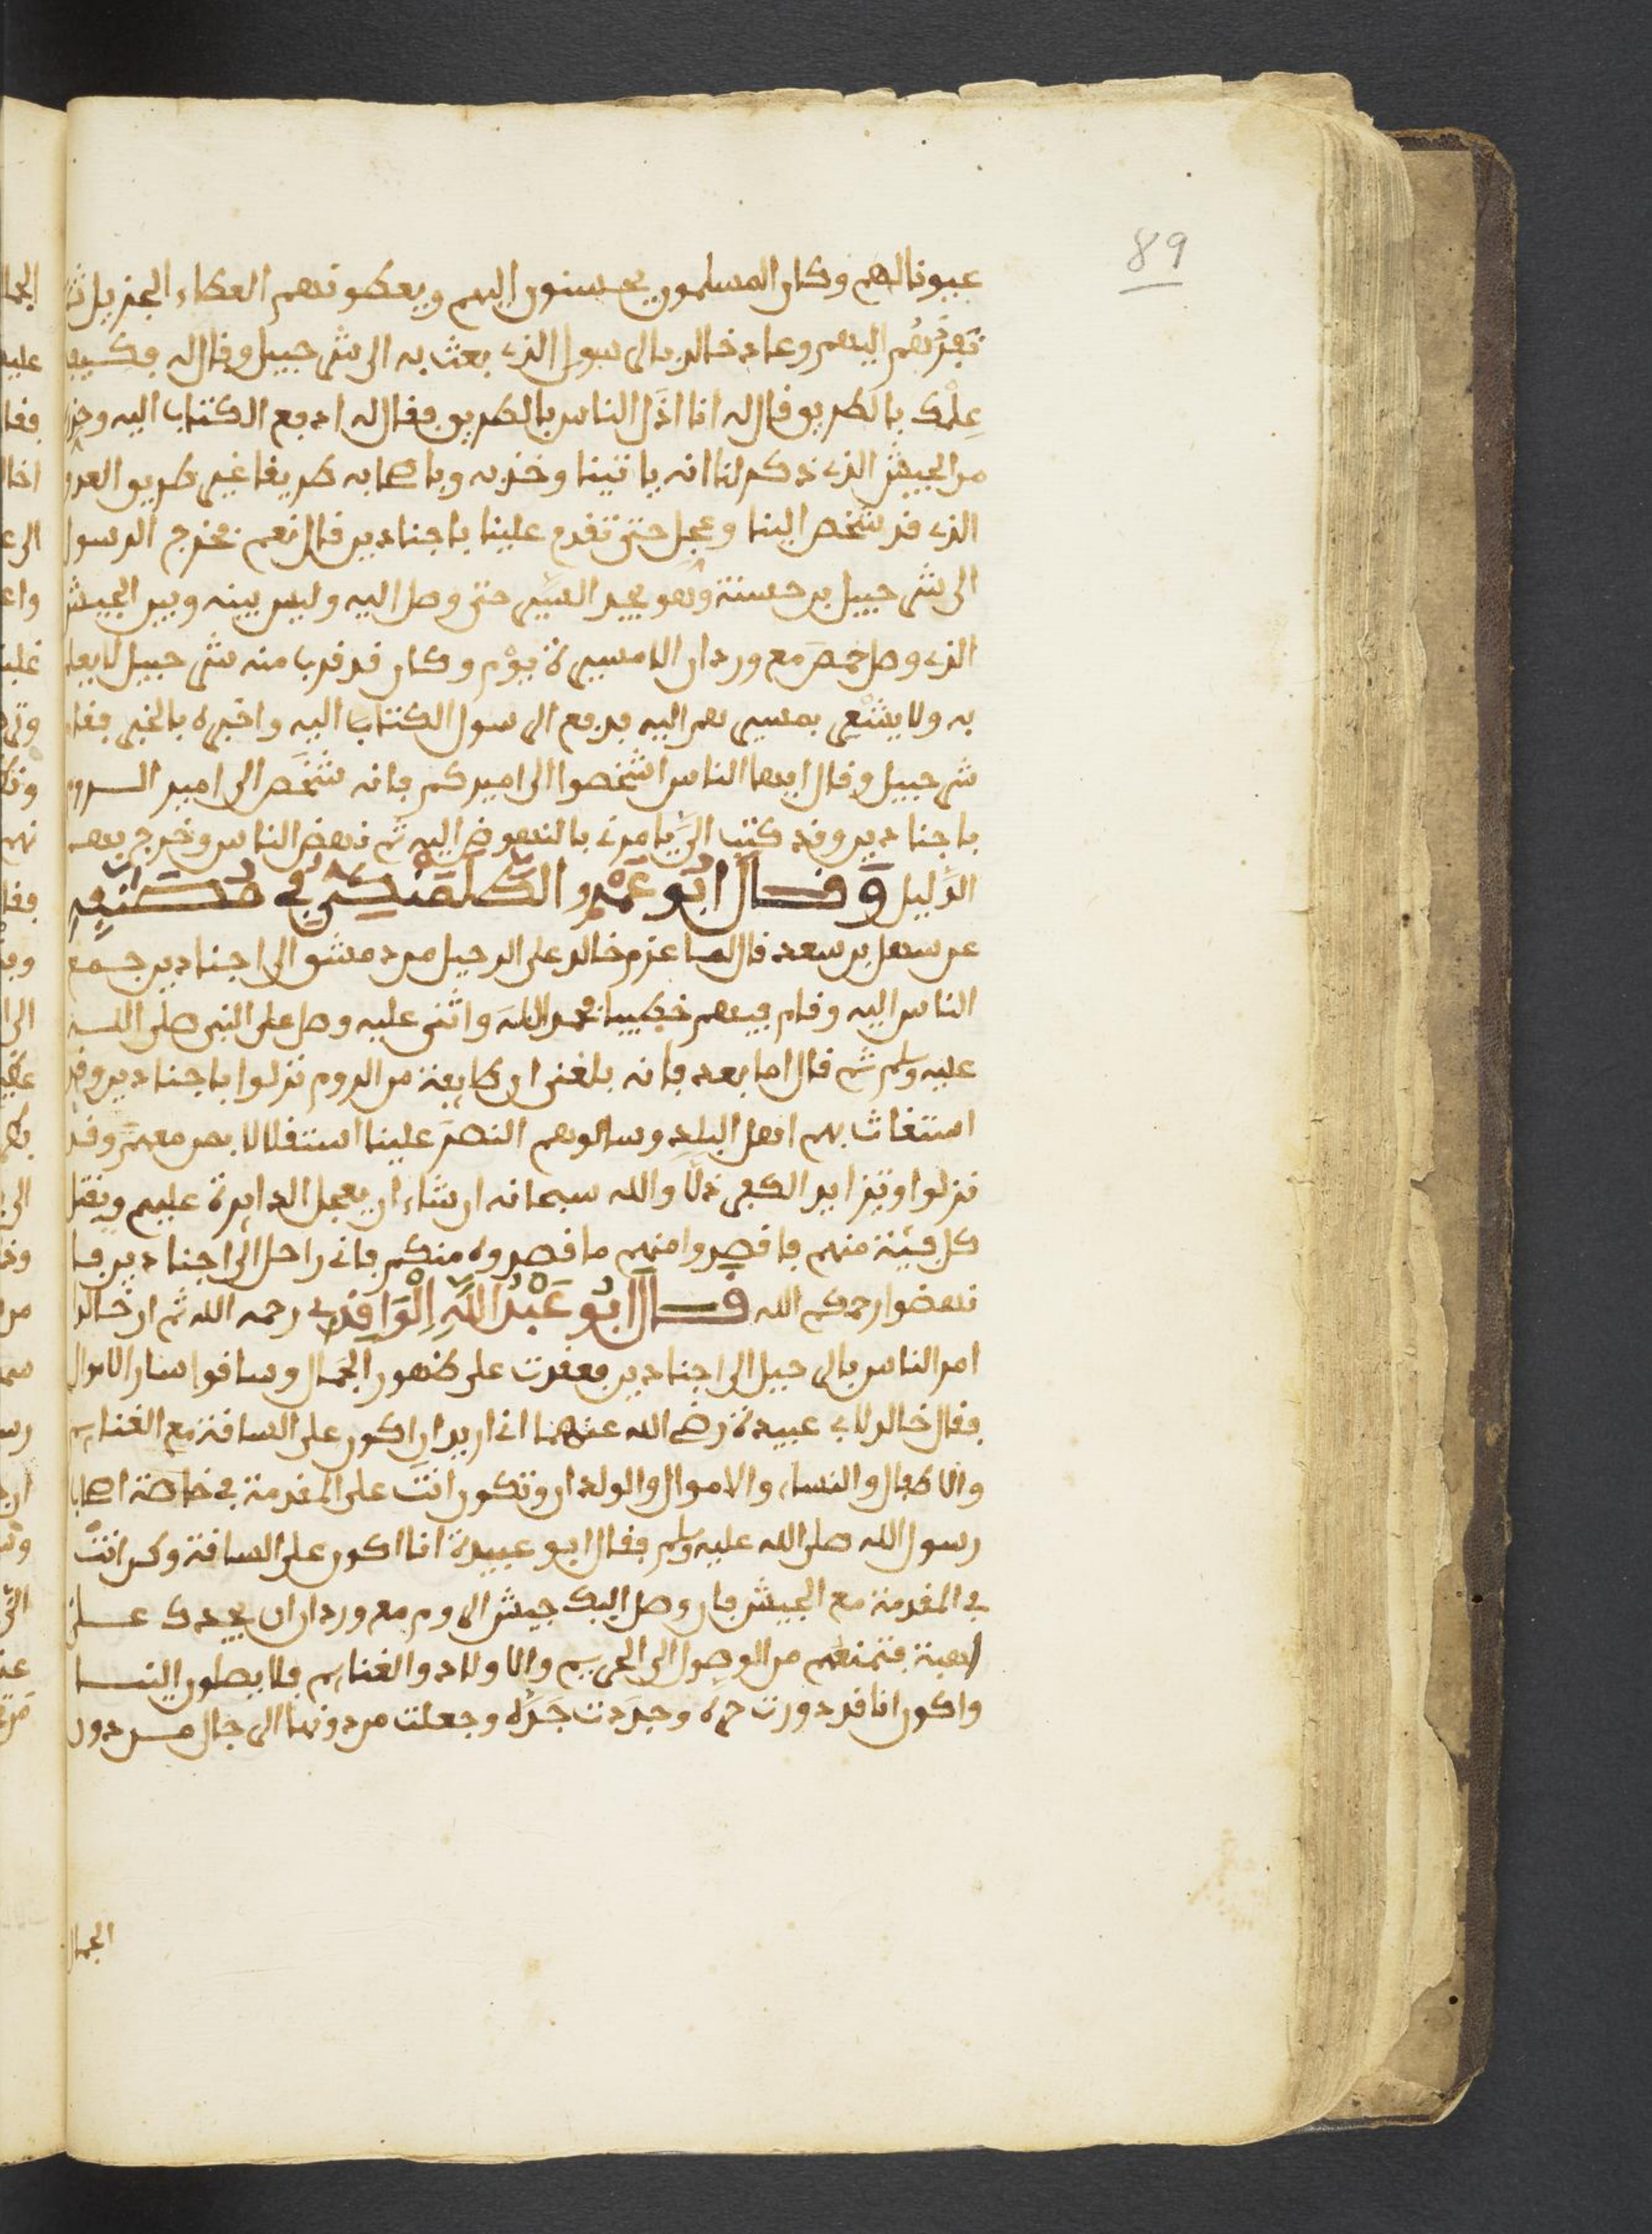 89
عيونا لهم وكان المسلمون يحسنون اليهم ويعطونهم العطاء الجزيل
تقربهم اليهم وعاد خالد بالرسول الذي بعث به الى شرحبيل وقال له فكيف
علمك بالطريق قال له انا ادل الناس بالطريق فقال له ادفع الكتاب اليه وحذره
من الجيش الذي ذكر لنا انه ياتينا وخذ به وباصحابه طريقا غير طريق العدو
الذي قد شخص الينا وعجل حتى تقدم علينا باجنادين قال نعم فخرج الرسول
الى شرحبيل بن حسنة وهو يجد السير حتى وصل اليه وليس بينه وبين الجيش
الذي وصل حمص مع وردان الا مسيرة يوم وكان قد قرب منه شرحبيل لا يعلم
به ولا يشعر بمسيرهم اليه فدفع الرسول الكتاب اليه واخبره بالخبر فقام
شرحبيل وقال ايها الناس اشخصوا الى اميركم فانه شخص الى امير الروم
باجنادين وقد كتب الي يامرني بالنهوض اليه ثم نهض الناس وخرج بهم
الدليل وقال ابو عمرو في
عن سهل بن سعد قال لما عزم خالد على الرحيل من دمشق الى اجنادين جمع
الناس اليه وقام فيهم خطيبا فحمد الله واثنى عليه وصل على النبي صلى الله
عليه وسلم ثم قال اما بعد فانه بلغني ان طايفة من الروم نزلوا باجنادين وقد
استغاث بهم اهل البلد وسالوهم النصر علينا استقلالا بمن معهم وقد
نزلوا وتزايد الكفر ذلا والله سبحانه ان شاء ان يجعل الدايرة عليهم ويقتل
كل فئة منهم فاقصدوا منهم ما قصدوه منكم فاني راحل الى اجنادين فا
نهضوا رحمكم الله قال ابو عبد الله الواقدي رحمه الله ثم ان خالدا
امر الناس بالرحيل الى اجنادين فعقدت على ظهور الجمال وساقوا سار الاموال
فقال خالد لابي عبيدة رضي الله عنهما اني اريد ان اكون على الساقة مع الغنايم
والاطفال والنساء والاموال والولدان وتكون انت على المقدمة في خاصة اصحاب
رسول الله صلى الله عليه وسلم فقال ابو عبيدة انا اكون على الساقة وكن انت
في المقدمة مع الجيش فان وصل اليك جيش الروم مع وردان يجدك على
اهبة فتمنعهم من الوصول الى الحريم والاولاد والغنايم فلا يصلون الينا
واكون انا قد دورت وجردت وجعلت من دونها الرجال من دون
الجمال